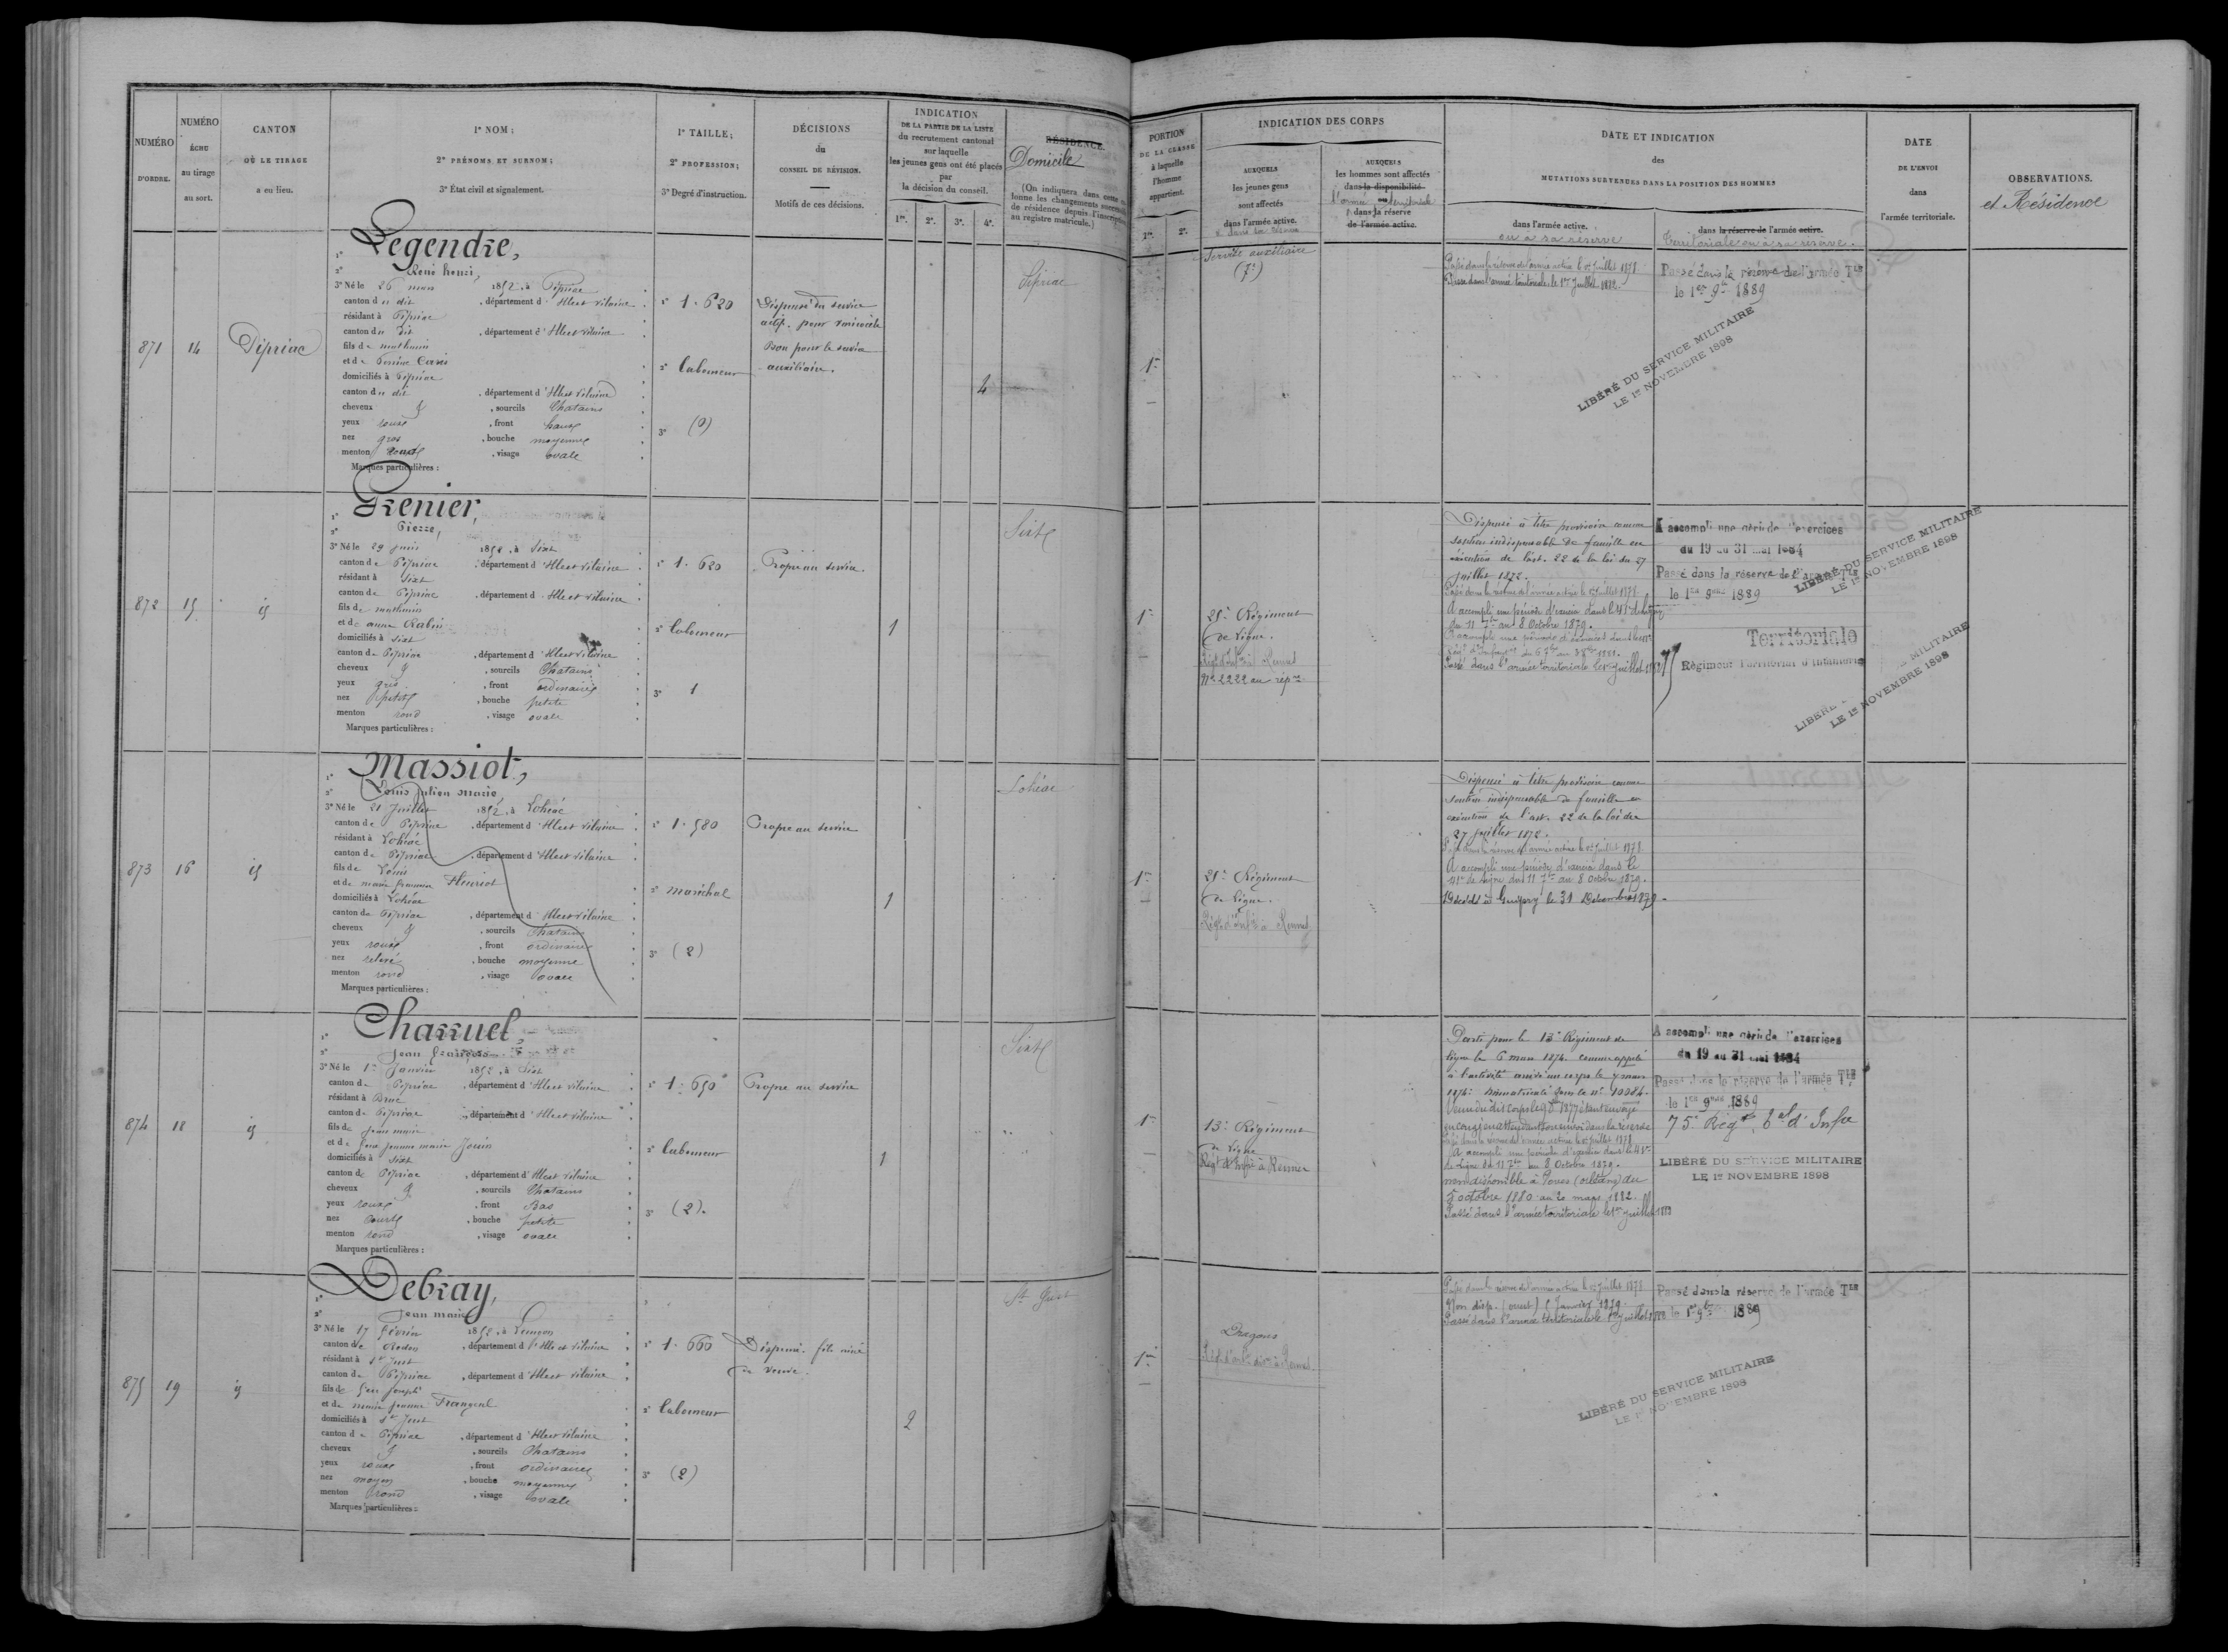 NUMÉRO
D'ORDRE.
NUMÉRO
ÉCHU
au tirage
au sort.
CANTON
OÙ LE TIRAGE
a eu lieu.
1° NOM ;
2° PRÉNOMS ET SURNOM ;
3° État civil et signalement.
1° TAILLE ;
2° PROFESSION ;
3° Degré d'instruction.
DÉCISIONS
du
CONSEIL DE RÉVISION.
Motifs de ces décisions.
INDICATION
DE LA PARTIE DE LA LISTE
du recrutement cantonal
sur laquelle
les jeunes gens ont été placés
par
la décision du conseil.
1re. 2e. 3e. 4e.
RÉSIDENCE.
Domicile
(On indiquera dans cette
lonne les changements
de résidence depuis l'inscription
au registre matricule.)
871
14
Pipriac
Legendre,
René henri,
3° Né le 26 mars 1852, à Pipriac
canton du dit, département d'Ille et Vilaine
résidant à Pipriac
canton du dit, département d'Ille et Vilaine
fils de mathurin
et de Perrine
domiciliés à Pipriac
canton du dit, département d'Ille et Vilaine
cheveux &, sourcils Chatains
yeux roux, front haut
nez gros, bouche moyenne
menton rond, visage ovale
Marques particulières :
1° 1.620
2° laboureur
3° (0)
Dispensé du service
actif. pour varicocèle
Bon pour le service
auxiliaire.
4
Pipriac
872
15
id
Grenier,
Pierre,
3° Né le 29 juin 1852, à Sixt
canton de Pipriac, département d'Ille et Vilaine
résidant à Sixt
canton de Pipriac, département d'Ille et Vilaine
fils de mathurin
et de anne Rabin
domiciliés à Sixt
canton de Pipriac, département d'Ille et Vilaine
cheveux &, sourcils Chatains
yeux gris, front ordinaire
nez petit, bouche petite
menton rond, visage ovale
Marques particulières :
1° 1.620
2° laboureur
3° 1
Propre au service.
1
Sixt
873
16
id
Massiot,
Louis Julien Marie
3° Né le 21 Juillet 1852, à Lohéac
canton de Pipriac, département d'Ille et Vilaine
résidant à Lohéac
canton de Pipriac, département d'Ille et Vilaine
fils de Louis
et de marie françoise Fleuriot
domiciliés à Lohéac
canton de Pipriac, département d'Ille et Vilaine
cheveux &, sourcils Chatains
yeux roux, front ordinaire
nez relevé, bouche moyenne
menton rond, visage ovale
Marques particulières :
1° 1.580
2° maréchal
3° (2)
Propre au service
1
Lohéac
874
18
id
Charruel,
Jean François
3° Né le 1er Janvier 1852, à Sixt
canton de Pipriac, département d'Ille et Vilaine
résidant à Bruc
canton de Pipriac, département d'Ille et Vilaine
fils de Jean marie
et de feue jeanne marie
domiciliés à Sixt
canton de Pipriac, département d'Ille et Vilaine
cheveux &, sourcils Chatains
yeux roux, front Bas
nez Court, bouche petite
menton rond, visage ovale
Marques particulières :
1° 1.650
2° laboureur
3° (2).
Propre au service
1
Sixt
875
19
id
Debray,
Jean marie
3° Né le 17 février 1852, à
canton de Redon, département d'Ille et Vilaine
résidant à St Just
canton de Pipriac, département d'Ille et Vilaine
fils de feu Joseph
et de marie jeanne
domiciliés à St Just
canton de Pipriac, département d'Ille et Vilaine
cheveux &, sourcils Chatains
yeux roux, front ordinaire
nez moyen, bouche moyenne
menton rond, visage ovale
Marques particulières :
1° 1.660
2° laboureur
3° (2)
Dispensé. fils aîné
de veuve.
2
St Just
PORTION
DE LA CLASSE
à laquelle
l'homme
appartient.
1re. 2e.
INDICATION DES CORPS
AUXQUELS
les jeunes gens
sont affectés
dans l'armée active.
AUXQUELS
les hommes sont affectés
dans la disponibilité
ou
l'armée territoriale
dans la réserve
de l'armée active.
DATE ET INDICATION
des
MUTATIONS SURVENUES DANS LA POSITION DES HOMMES
dans l'armée active.
ou à sa réserve
dans la réserve de l'armée active.
Territoriale ou à sa réserve.
DATE
DE L'ENVOI
dans
l'armée territoriale.
OBSERVATIONS.
et Résidence
1re
Service auxiliaire
(7e)
Passé dans la réserve de l'armée active le 1er Juillet 1878
Passé dans l'armée territoriale le 1er Juillet 1882.
Passé dans la réserve de l'armée Tle
le 1er 9bre 1889
LIBÉRÉ DU SERVICE MILITAIRE
LE 1er NOVEMBRE 1898
1re
25e Régiment
de Ligne.
No 2222 au rép.re
Dispensé à titre provisoire comme
soutien indispensable de famille en
exécution de l'art. 22 de la loi du 27
juillet 1872.
Passé dans la réserve de l'armée active le 1er Juillet 1878
A accompli une période d'exercice dans le 41e de ligne
du 11 7bre au 8 Octobre 1879.
Passé dans l'armée territoriale le 1er juillet
A accompli une période d'exercices
du 19 au 31 mai 1884
Passé dans la réserve de l'armée Tle
le 1er 9bre 1889
Territoriale
75
Régiment Territorial d'Infanterie
LIBÉRÉ DU SERVICE MILITAIRE
LE 1er NOVEMBRE 1898
LIBÉRÉ MILITAIRE
LE 1er NOVEMBRE 1898
1re
25e Régiment
de Ligne.
Régt d'infie à Rennes
Dispensé à titre provisoire comme
soutien indispensable de famille en
exécution de l'art. 22 de la loi du
27 juillet 1872.
Passé dans la réserve de l'armée active le 1er Juillet 1878
A accompli une période d'exercice dans le
41e de Ligne du 11 7bre au 8 Octobre 1879.
Décédé à Guipry le 31 Décembre 1879.
1re
13e Régiment
de Ligne
Régt d'Infie à Rennes
Parti pour le 13e Régiment de
ligne le 6 mars 1874. comme appelé
à l'activité arrivé au corps le 7 mars
1874. immatriculé sous le no 10084.
Passé dans la réserve de l'armée active le 1er juillet 1878
A accompli une période d'exercice dans le 41e
de Ligne du 11 7bre au 8 Octobre 1879.
non disponible à (orléans) du
5 octobre 1880 au 20 mars 1882.
Passé dans l'armée territoriale le 1er juillet
A accompli une période d'exercices
du 19 au 31 mai 1884
Passé dans la réserve de l'armée Tle
le 1er 9bre 1889
75e Régt Tal d'Infie
LIBÉRÉ DU SERVICE MILITAIRE
LE 1er NOVEMBRE 1898
1re
Dragons
Passé dans la réserve de l'armée active le 1er Juillet 1878
Non disp. (ouest) 5 Janvier 1879.
Passé dans l'armée territoriale le 1er juillet
Passé dans la réserve de l'armée Tle
le 1er 9bre 1889
LIBÉRÉ DU SERVICE MILITAIRE
LE 1er NOVEMBRE 1898